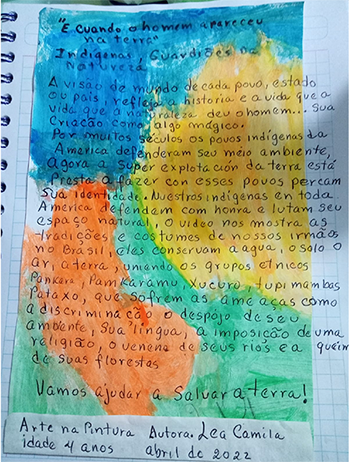 "E cuando o homem apareceu
na terra"
Indígenas, Guardiões na
Natureza
A visão de mundo de cada povo, estado
ou país reflejo a historia e a vida que a
vida que a naturaleza deu o homem... sua
Criação como algo mágico.
Por muitos séculos os povos indígenas da
America defenderam seu meio ambiente,
agora a super explotación da terra está
Presta a fazer con esses povos percam
Sua identidade. Nuestras indígenas en toda
América defendem com honra e lutam seu
espaço natural, O video nos mostra as
tradições e costumes de vossos irmãos
no Brasil, eles conservam a agua, o solo o
ar, a terra, uniendo os grupos etnicos
Pankara, Pamkaramu, Xucuru, tupimambas
Pataxo, que sofrem as ameaças como
a discriminacão, o despojo de seu
ambiente, Sua língua, a imposição de uma
religião, o uenena de seus rios e a queim
de suas florestas
Vamos ajudar a Salvar a terra!
Arte na Pintura Autora. Lea Camila
idade 4 anos abril de 2022